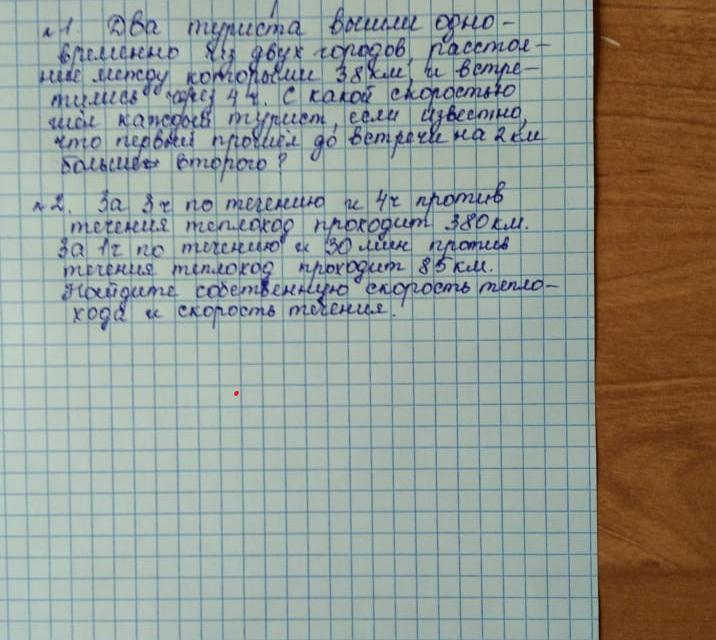 №1. Два туриста вышли одно-
временно из двух городов, расстоя-
ние между которыми 38 км, и встре-
тились через 4 ч. С какой скоростью
шёл каждый турист, если известно,
что первый прошёл до встречи на 2 км
больше второго?
№2. За 3 ч по течению и 4 ч против
течения теплоход проходит 380 км.
За 1 ч по течению и 30 мин против
течения теплоход проходит 85 км.
Найдите собственную скорость тепло-
хода и скорость течения.